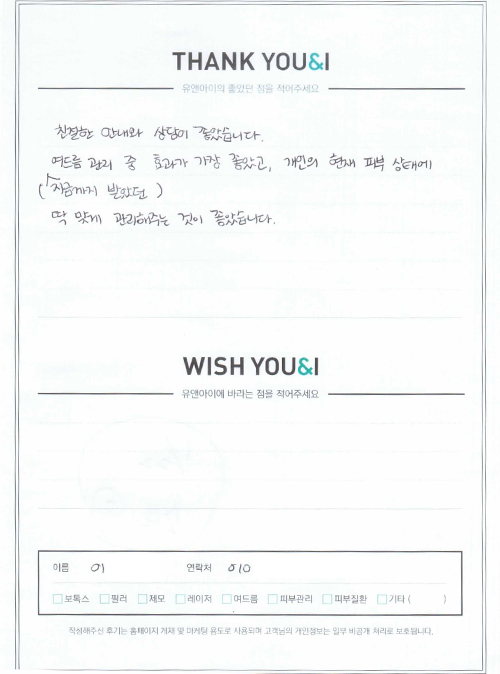 THANK YOU&I
유앤아이의 좋았던 점을 적어주세요
친절한 안내와 상담이 좋았습니다.
여드름 관리 중 효과가 가장 좋았고, 개인의 현재 피부 상태에
(지금까지 받았던)
딱 맞게 관리해주는 것이 좋았습니다.
WISH YOU&I
유앤아이에 바라는 점을 적어주세요
이름 이 연락처 010
보톡스 필러 제모 레이저 여드름 피부관리 피부질환 기타 ( )
작성해주신 후기는 홈페이지 게재 및 마케팅 용도로 사용되며 고객님의 개인정보는 일부 비공개 처리로 보호됩니다.